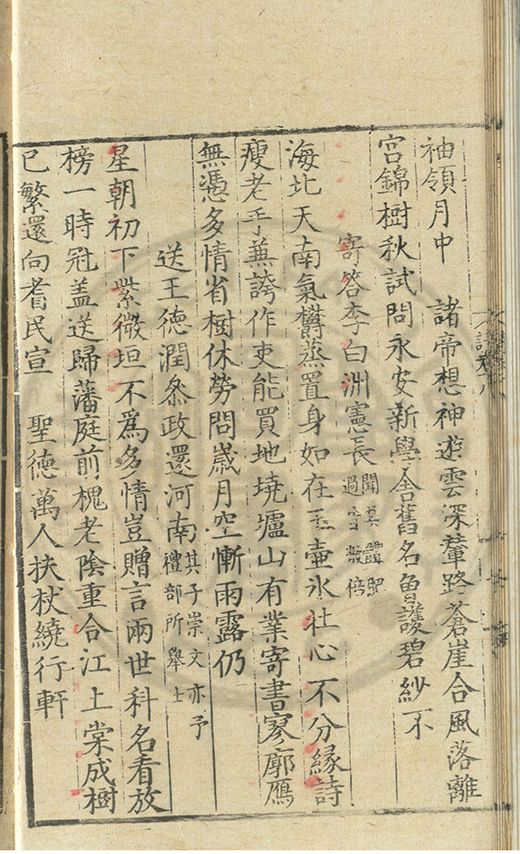 袖領月中　諸帝想神遊雲深輦路蒼崖合風落離
宮錦樹秋試問永安新學舍舊名曾護碧紗不
寄答李白淵憲長聞其體肥過昔數倍
海北天南氣欝蒸置身如在玉壺氷壮心不分緣詩
瘦老手兼誇作吏能買地境壚山有業寄書寥廓鴈
無憑多情省樹休勞問歲月空慚雨露仍
送王德潤叅政還河南其子崇文亦予禮部所舉士
星朝初下紫微垣不爲多情豈贈言兩世科名看放
榜一時冠盖送歸藩庭前槐老陰重合江上棠成樹
已繁還向耆民宣　聖德萬人扶杖繞行軒